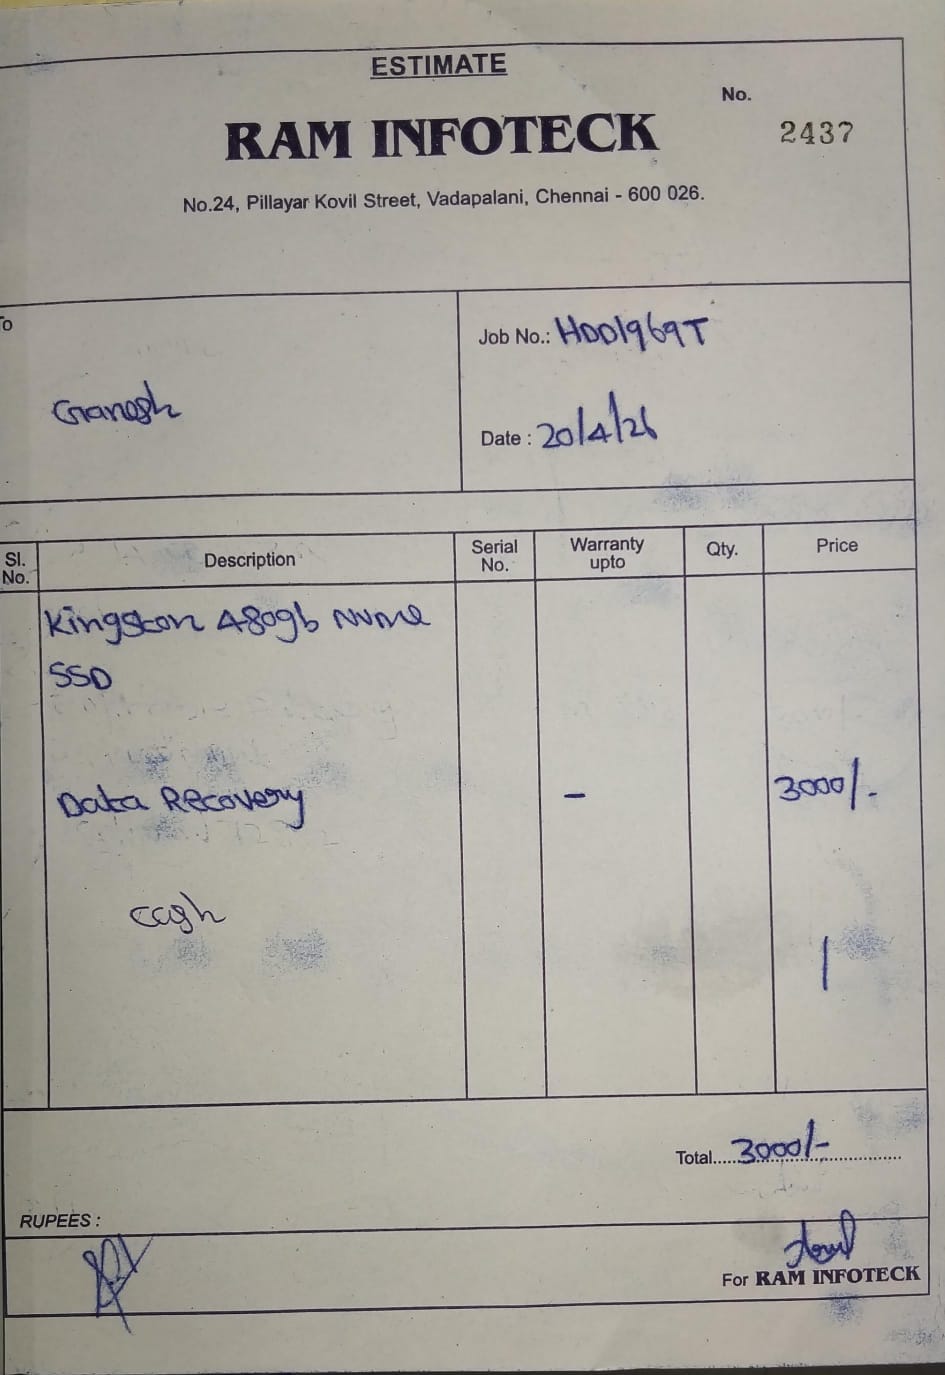 ESTIMATE
No.
2437
RAM INFOTECK
No.24, Pillayar Kovil Street, Vadapalani, Chennai - 600 026.
To
Ganesh
Job No.: HDD1969T
Date : 20/4/26
Sl. No. Description Serial No. Warranty upto Qty. Price
Kingston 480gb NVMe
SSD
Data Recovery - 3000/-
Cash
Total.....3000/-
RUPEES :
For RAM INFOTECK